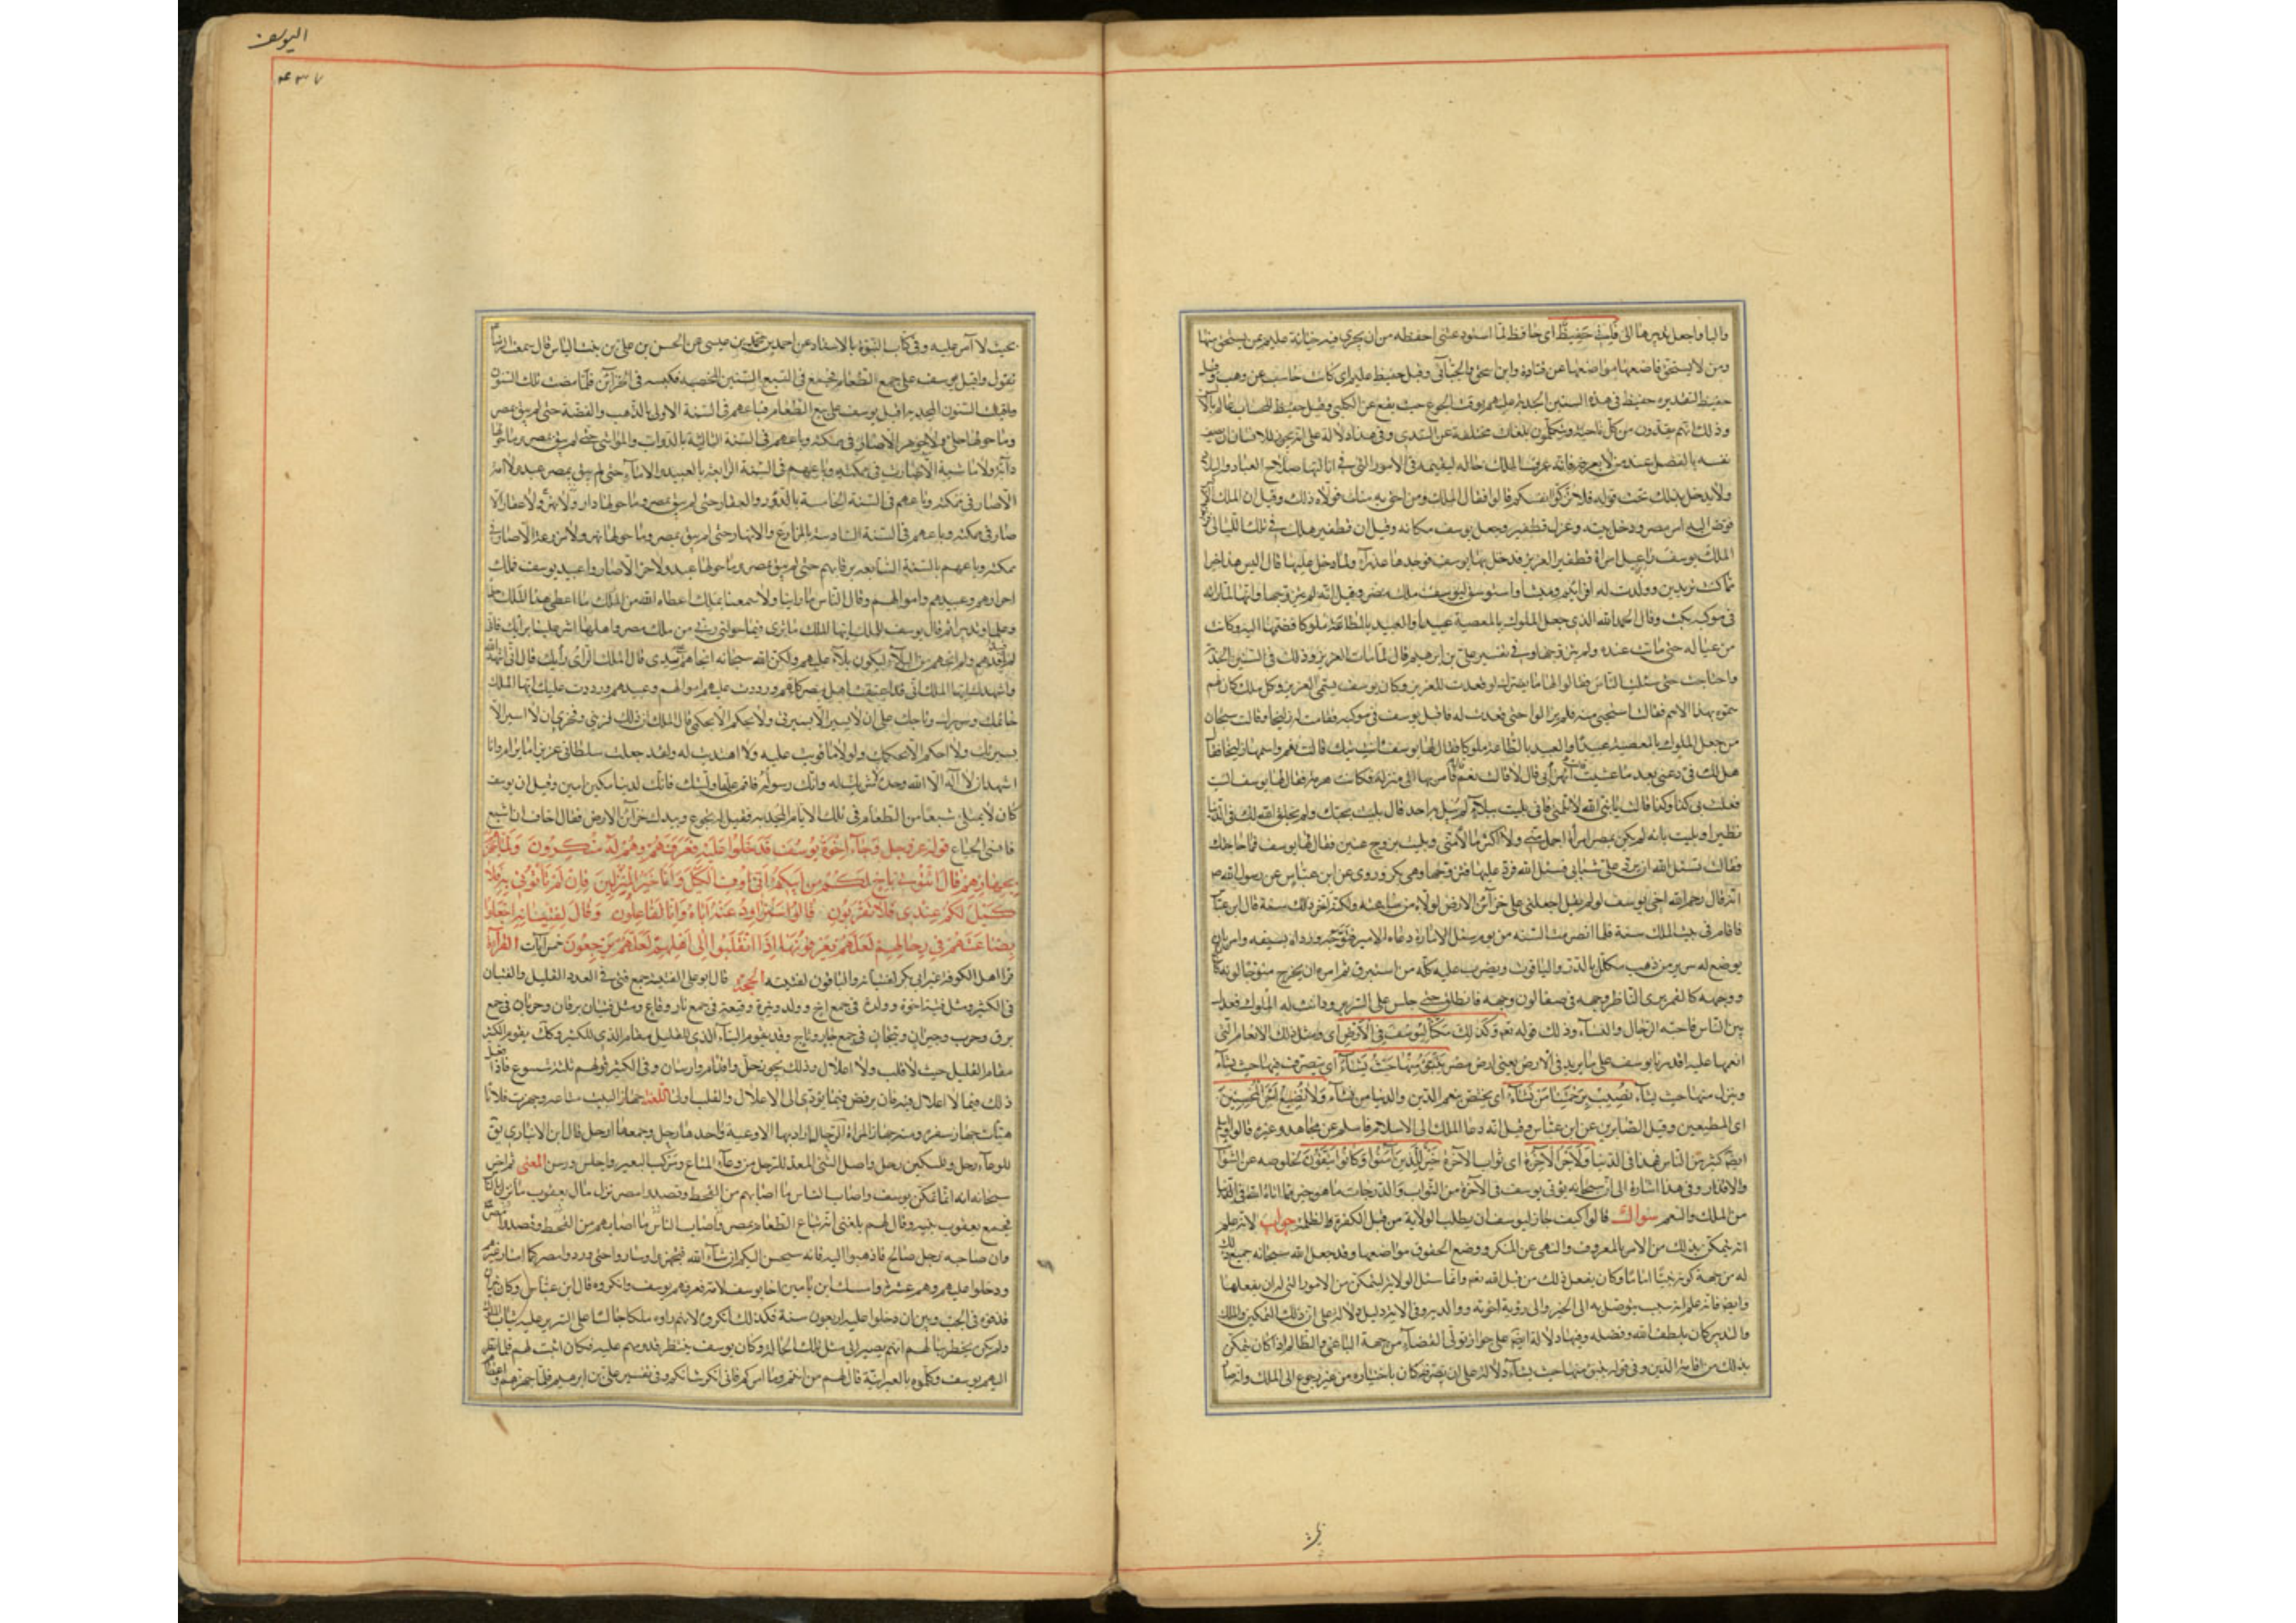 واليا واجعل تدبيرها الى فاني حَفِيظٌ اى حافظ لما استودعتنى احفظه من ان يجرى فيه خيانة عليم بمن يستحق منها
ومن لا يستحق فاضعها مواضعها عن قتادة وابن اسحق والجبائى وقيل حفيظ عليم اى كاتب حاسب عن وهب وقيل
حفيظ للتقدير فى هذه السنين الجدبة عليم بوقت الجوع حين يقع عن الكلبى وقيل حفيظ للحساب عالم بالالسن
وذلك انهم يفدون من كل ناحية ويتكلمون بلغات مختلفة عن السدى وفى هذا دلالة على انه يجوز للانسان ان يصف
نفسه بالفضل عند من لا يعرفه فانه عرف الملك حاله ليقيمه فى الامور التى فى ايالتها صلاح العباد والبلاد
ولا يدخل بذلك تحت قوله فلا تزكوا انفسكم قالوا فقال الملك ومن احق به منك فولاه ذلك وقيل ان الملك الاكبر
فوض اليه امر مصر ودخل بيته وعزل قطفير وجعل يوسف مكانه وقيل ان قطفير هلك فى تلك الليالى
الملك يوسف راعيل امراة قطفير العزيز فدخل بها يوسف فوجدها عذراء ولما دخل عليها قال اليس هذا خيرا
مما كنت تريدين وولدت له افرائيم وميشا واستوسق ليوسف ملك مصر وقيل انه لم يتزوجها وانها لما راته
فى موكبه بكت وقالت الحمد لله الذى جعل الملوك بالمعصية عبيدا والعبيد بالطاعة ملوكا فضمها اليه وكانت
من عياله حتى ماتت عنده ولم يتزوجها وفى تفسير على بن ابرهيم قال لما مات العزيز وذلك فى السنين الجدبة
واحتاجت حتى سئلت الناس فقالوا لها ما يضرك لو قعدت للعزيز وكان يوسف يسمى العزيز وكل ملك كان لهم
سموه بهذا الاسم فقالت استحيى منه فلم يزالوا حتى قعدت له فاقبل يوسف فى موكبه فقامت اليه زليخا وقالت سبحان
من جعل الملوك بالمعصية عبيدا والعبيد بالطاعة ملوكا فقال لها يوسف انت تيك قالت نعم واسمها زليخا فقال
هل لك فى قالت دعنى بعد ما عنيت اتهزأ بى قال لا قالت نعم فامر بها الى منزله وكانت هرمة فقال لها يوسف الست
فعلت بى كذا وكذا قالت يا نبى الله لا تلمنى فانى بليت ببلاء لم يبل به احد قال بليت بحبك ولم يخلق الله لك فى الدنيا
نظيرا وبليت بانه لم يكن بمصر امراة اجمل منى ولا اكثر مالا منى وبليت بزوج عنين فقال لها يوسف فما حاجتك
فقالت تسئل الله ان يرد على شبابى فسئل الله فرد عليها فتزوجها وهى بكر وروى عن ابن عباس عن رسول الله ص
انه قال رحم الله اخى يوسف لو لم يقل اجعلنى على خزائن الارض لولاه من ساعته ولكنه اخر ذلك سنة قال ابن عباس
فاقام فى بيت الملك سنة فلما انصرمت السنة من يوم سئل الامارة دعاه الامير فتوجه ورداه بسيفه وامر بان
يوضع له سرير من ذهب مكلل بالدر والياقوت ويضرب عليه كلة من استبرق ثم امره ان يخرج متوجا لونه كالثلج
ووجهه كالقمر يرى الناظر وجهه فى صفا لون وجهه فانطلق حتى جلس على السرير ودانت له الملوك فعدل
بين الناس فاحبه الرجال والنساء وذلك قوله تعم وَكَذٰلِكَ مَكَّنّا لِيُوسُفَ فِى الْاَرْضِ اى ومثل ذلك الانعام الذى
انعمنا عليه اقدرنا يوسف على ما يريد فى الارض يعنى ارض مصر يَتَبَوَّءُ مِنْها حَيْثُ يَشاءُ اى يتصرف فيها حيث يشاء
وينزل منها حيث يشاء نُصِيبُ بِرَحْمَتِنا مَنْ نَشاءُ اى نختص بنعم الدين والدنيا من نشاء وَلا نُضِيعُ اَجْرَ الْمُحْسِنِينَ
اى المطيعين وقيل الصابرين عن ابن عباس وقيل انه دعا الملك الى الاسلام فاسلم عن مجاهد وغيره قالوا واسلم
ايضا كثير من الناس فهذا فى الدنيا وَلَاَجْرُ الْآخِرَةِ اى ثواب الآخرة خَيْرٌ لِلَّذِينَ آمَنُوا وَكانُوا يَتَّقُونَ لخلوصه عن الشوائب
والاقذار وفى هذا اشارة الى ان سبحانه يؤتى يوسف فى الآخرة من الثواب والدرجات ما هو خير مما اتاه الله فى الدنيا
من الملك والنعم سؤال قالوا كيف جاز ليوسف ان يطلب الولاية من قبل الكفرة والظلمة جواب لانه علم
انه يتمكن بذلك من الامر بالمعروف والنهى عن المنكر ووضع الحقوق مواضعها وقد جعل الله سبحانه جميع ذلك
له من جهة كونه نبيا اماما وكان يفعل ذلك من قبل الله تعم وانما سئل الولاية ليتمكن من الامور التى له ان يفعلها
وايضا فانه علم انه سبب يتوصل به الى الخير والى رؤية اخوته ووالديه وفى الاية دليل ودلالة على ان ذلك التمكين والملك
والتدبير كان بلطف الله وفضله وفيها دلالة ايضا على جواز تولى القضاء من جهة الباغى والظالم اذا كان يتمكن
بذلك من اقامة الدين وفى قوله يتبوء منها حيث يشاء دلالة على ان تصرفه كان باختياره من غير رجوع الى الملك وانه صار
اليوسف
۴۳۷
بحيث لا آمر عليه وفى كتاب النبوة بالاسناد عن احمد بن محمد بن عيسى عن الحسن بن على بن بنت الياس قال سمعت الرضا
يقول واقبل يوسف على جمع الطعام فجمع فى السبع السنين المخصبة فكبسه فى الخزائن فلما مضت تلك السنون
واقبلت السنون المجدبة اقبل يوسف على بيع الطعام فباعهم فى السنة الاولى بالذهب والفضة حتى لم يبق بمصر
وما حولها حلى ولا جوهر الا صار فى مملكته وباعهم فى السنة الثالثة بالدواب والمواشى حتى لم يبق بمصر وما حولها
دابة ولا ماشية الا صارت فى مملكته وباعهم فى السنة الرابعة بالعبيد والاماء حتى لم يبق بمصر عبد ولا امة
الا صار فى مملكته وباعهم فى السنة الخامسة بالدور والعقار حتى لم يبق بمصر وما حولها دار ولا عقار الا
صار فى مملكته وباعهم فى السنة السادسة بالمزارع والانهار حتى لم يبق بمصر وما حولها نهر ولا مزرعة الا صار فى
مملكته وباعهم بالسنة السابعة برقابهم حتى لم يبق بمصر وما حولها عبد ولا حر الا صار عبيد يوسف فملك
احرارهم وعبيدهم واموالهم وقال الناس ما راينا ولا سمعنا بملك اعطاه الله من الملك ما اعطى هذا الملك حكما
وعلما وتدبيرا ثم قال يوسف للملك ايها الملك ما ترى فيما خولنى ربى من ملك مصر واهلها اشر علينا برأيك فانى
لم اصلحهم لافسدهم ولم انجهم من البلاء ليكون بلاء عليهم ولكن الله سبحانه انجاهم بيدى قال الملك الراى رأيك قال انى اشهد الله
واشهدك ايها الملك انى قد اعتقت اهل مصر كلهم ورددت عليهم اموالهم وعبيدهم ورددت عليك ايها الملك
خاتمك وسريرك وتاجك على ان لا تسير الا بسيرتى ولا تحكم الا بحكمى قال الملك ان ذلك لزينى وفخرى ان لا اسير الا
بسيرتك ولا احكم الا بحكمك ولولاك ما قويت عليه ولا اهتديت له ولقد جعلت سلطانى عزيزا ما يرام وانا
اشهد ان لا اله الا الله وحده لا شريك له وانك رسوله فاقم على ما وليتك فانك لدينا مكين امين وقيل ان يوسف
كان لا يمتلى شبعا من الطعام فى تلك الايام المجدبة فقيل له تجوع وبيدك خزائن الارض فقال اخاف ان اشبع
فانسى الجياع قوله عز وجل وَجاءَ اِخْوَةُ يُوسُفَ فَدَخَلُوا عَلَيْهِ فَعَرَفَهُمْ وَهُمْ لَهُ مُنْكِرُونَ وَلَمّا جَهَّزَهُمْ
بِجَهازِهِمْ قالَ ائْتُونِى بِاَخٍ لَكُمْ مِنْ اَبِيكُمْ اَلا تَرَوْنَ اَنِّى اُوفِى الْكَيْلَ وَاَنا خَيْرُ الْمُنْزِلِينَ فَاِنْ لَمْ تَأْتُونِى بِهِ فَلا
كَيْلَ لَكُمْ عِنْدِى وَلا تَقْرَبُونِ قالُوا سَنُراوِدُ عَنْهُ اَباهُ وَاِنّا لَفاعِلُونَ وَقالَ لِفِتْيانِهِ اجْعَلُوا
بِضاعَتَهُمْ فِى رِحالِهِمْ لَعَلَّهُمْ يَعْرِفُونَها اِذَا انْقَلَبُوا اِلى اَهْلِهِمْ لَعَلَّهُمْ يَرْجِعُونَ خمس آيات القراءة
قرا اهل الكوفة غير ابى بكر لفتيانه والباقون لفتيته الحجة قال ابو على الفتية جمع فتى فى العدد القليل والفتيان
فى الكثير ومثل فتية اخوة وولدة فى جمع اخ وولد ونيرة وقيعة فى جمع نار وقاع ومثل فتيان برقان وخربان فى جمع
برق وخرب وجيران وتيجان فى جمع جار وتاج وقد يقوم البناء الذى للقليل مقام الذى للكثير وكذلك يقوم الكثير
مقام القليل حيث لا قلب ولا اعلال وذلك نحو ارجل واقدام وارسان وفى الكثير قولهم ثلثة شسوع فاذا فعل
ذلك فيما لا اعلال فيه فان يرفض فيما يؤدى الى الاعلال والقلب اولى اللغة جهاز البيت متاعه وجهزت فلانا
هيأت جهاز سفره ومنه جهاز المراة الرحال اراد بها الاوعية واحدها رحل وجمعها ارحل قال ابن الانبارى يق
للوعاء رحل وللمسكن رحل واصل الشئ المعد للرحيل من وعاء المتاع ومركب البعير وحلس ورسن المعنى ثم اخبر
سبحانه انه لما تمكن يوسف واصاب الناس ما اصابهم من القحط وقصدوا مصر نزل بآل يعقوب ما نزل بالناس
فجمع يعقوب بنيه وقال لهم بلغنى انه يباع الطعام بمصر واصاب الناس ما اصابهم من القحط وقصدوا مصر
وان صاحبه رجل صالح فاذهبوا اليه فانه سيحسن اليكم ان شاء الله فتجهزوا وساروا حتى وردوا مصر
ودخلوا عليه وهم عشرة وامسك ابن يامين اخا يوسف لامه فعرفهم يوسف وانكروه قال ابن عباس وكان بين ان
قذفوه فى الجب وبين ان دخلوا عليه اربعون سنة فلذلك انكروه لانهم راوه ملكا جالسا على السرير عليه ثياب الملوك
ولم يكن يخطر ببالهم انه يصير الى مثل تلك الحالة وكان يوسف ينتظر قدومهم عليه فكان اثبت لهم فلما نظر
اليهم يوسف وكلموه بالعبرانية قال لهم من انتم وما امركم فانى انكر شانكم وفى تفسير على بن ابرهيم فلما جهزهم واعطاهم